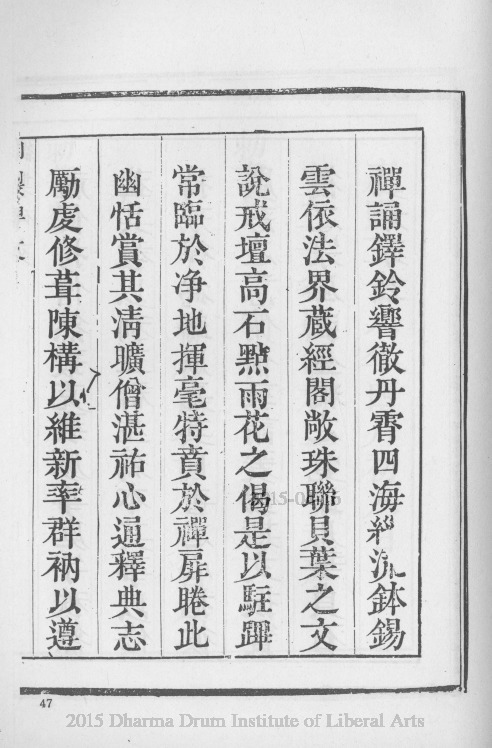 禪誦鐸鈴響徹丹霄四海緇流鉢錫
雲依法界藏經閣敞珠聯貝葉之文
說戒壇高石點雨花之偈是以駐蹕
常臨於净地揮毫特賁於禪扉睠此
幽恬賞其清曠僧湛祐心通釋典志
勵虔修葺陳構以維新率群衲以遵
47
2015 Dharma Drum Institute of Liberal Arts